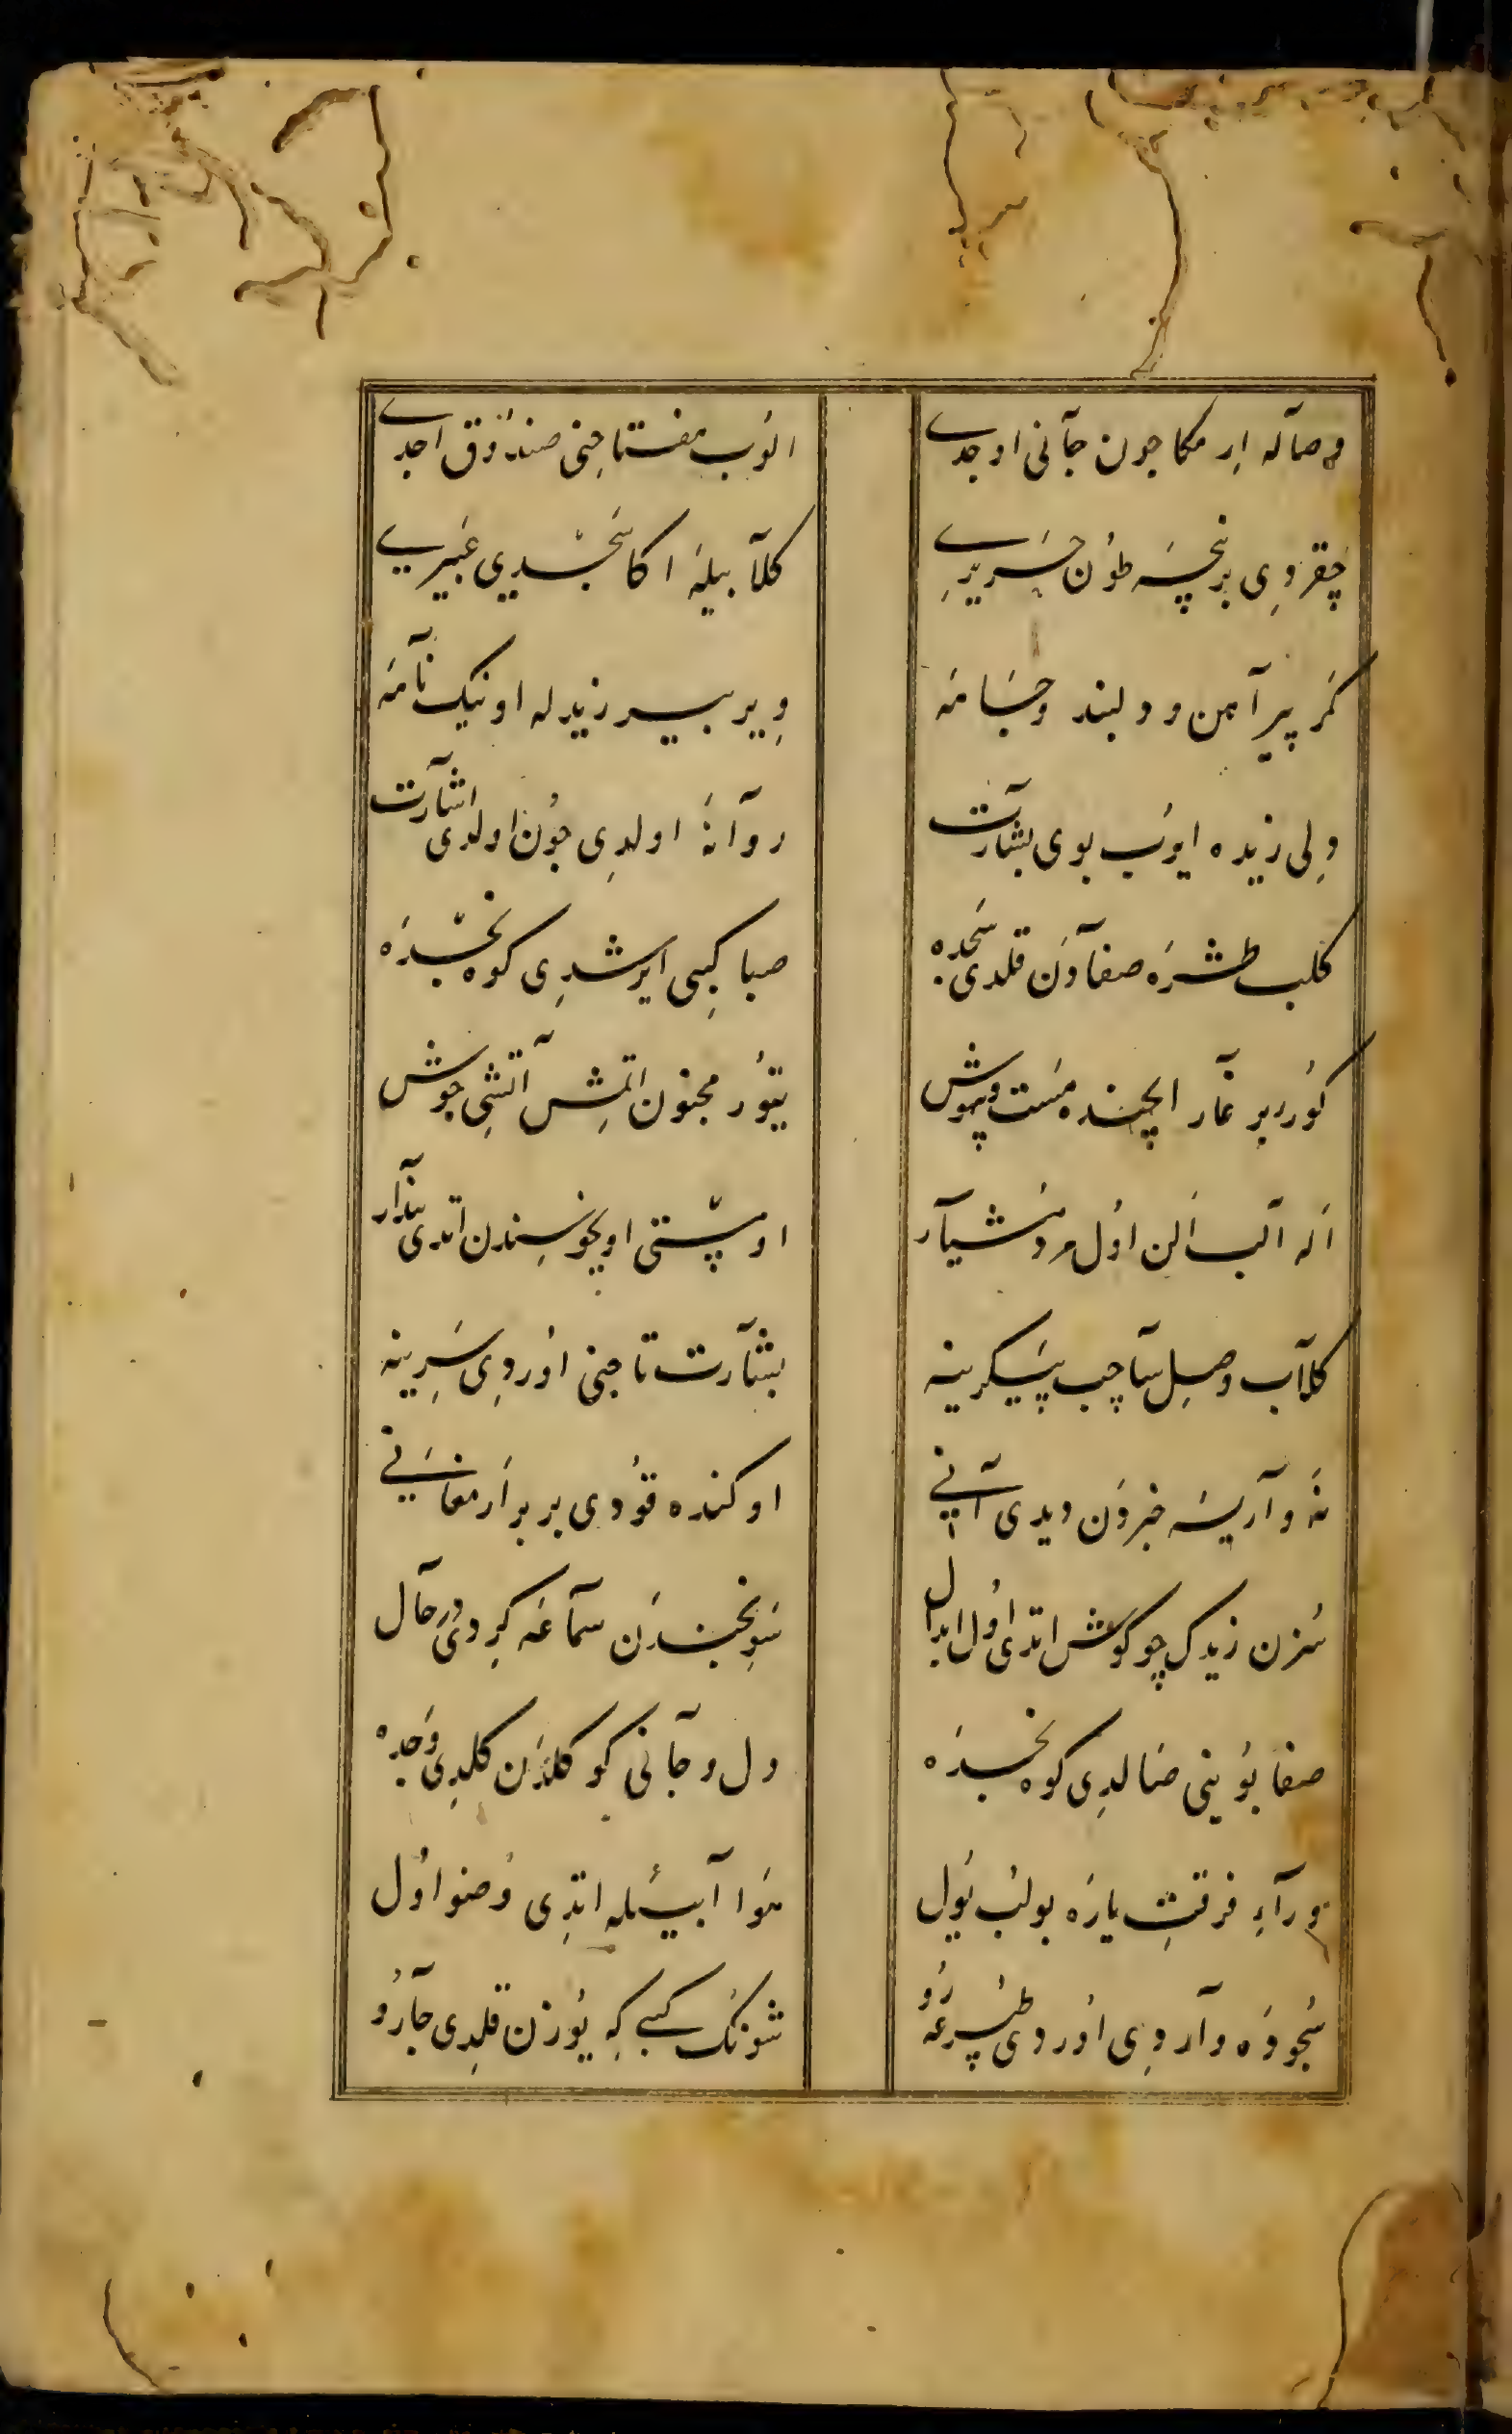 وصاله ارمكا چون جانی اوجدی الوب مفتاحنی صندوق اجدی
چقردی برنچه طون حریری كلاب بیله اكا سنجدی عبیری
كمر پیرآهن و دلبند و جامه ویربیر زیدله اونیك نامه
ولی زیده ایرب بوی بشارت روانه اولدی چون اولدی اشارت
كلب طشره صفادن قلدی سجده صبا كبی ایرشدی كوه نجده
كورر بر غار ایچنده مست و بیهوش یتور مجنون اتمش آتشی جوش
اله الب الن اول مرد هشیار اومشتی اویخوسندن اتدی بیدار
كلاب وصل ساچب پیكرینه بشارت تاجنی اوردی سرینه
نه واریسه خبردن دیدی آنی اوكنده قودی بر بر ارمغانی
سزن زیدك چو كوش اتدی اول ابدال سونجندن سماعه كردی در حال
صفا بویینی صالدی كوه نجده دل و جانی كوكلدن كلدی وجده
ورآء فرقت یاره بولب یول هوا آبیله اتدی وضو اول
سجوده واردی اوردی طپرغه رو شونك كبی كه یوزن قلدی جارو